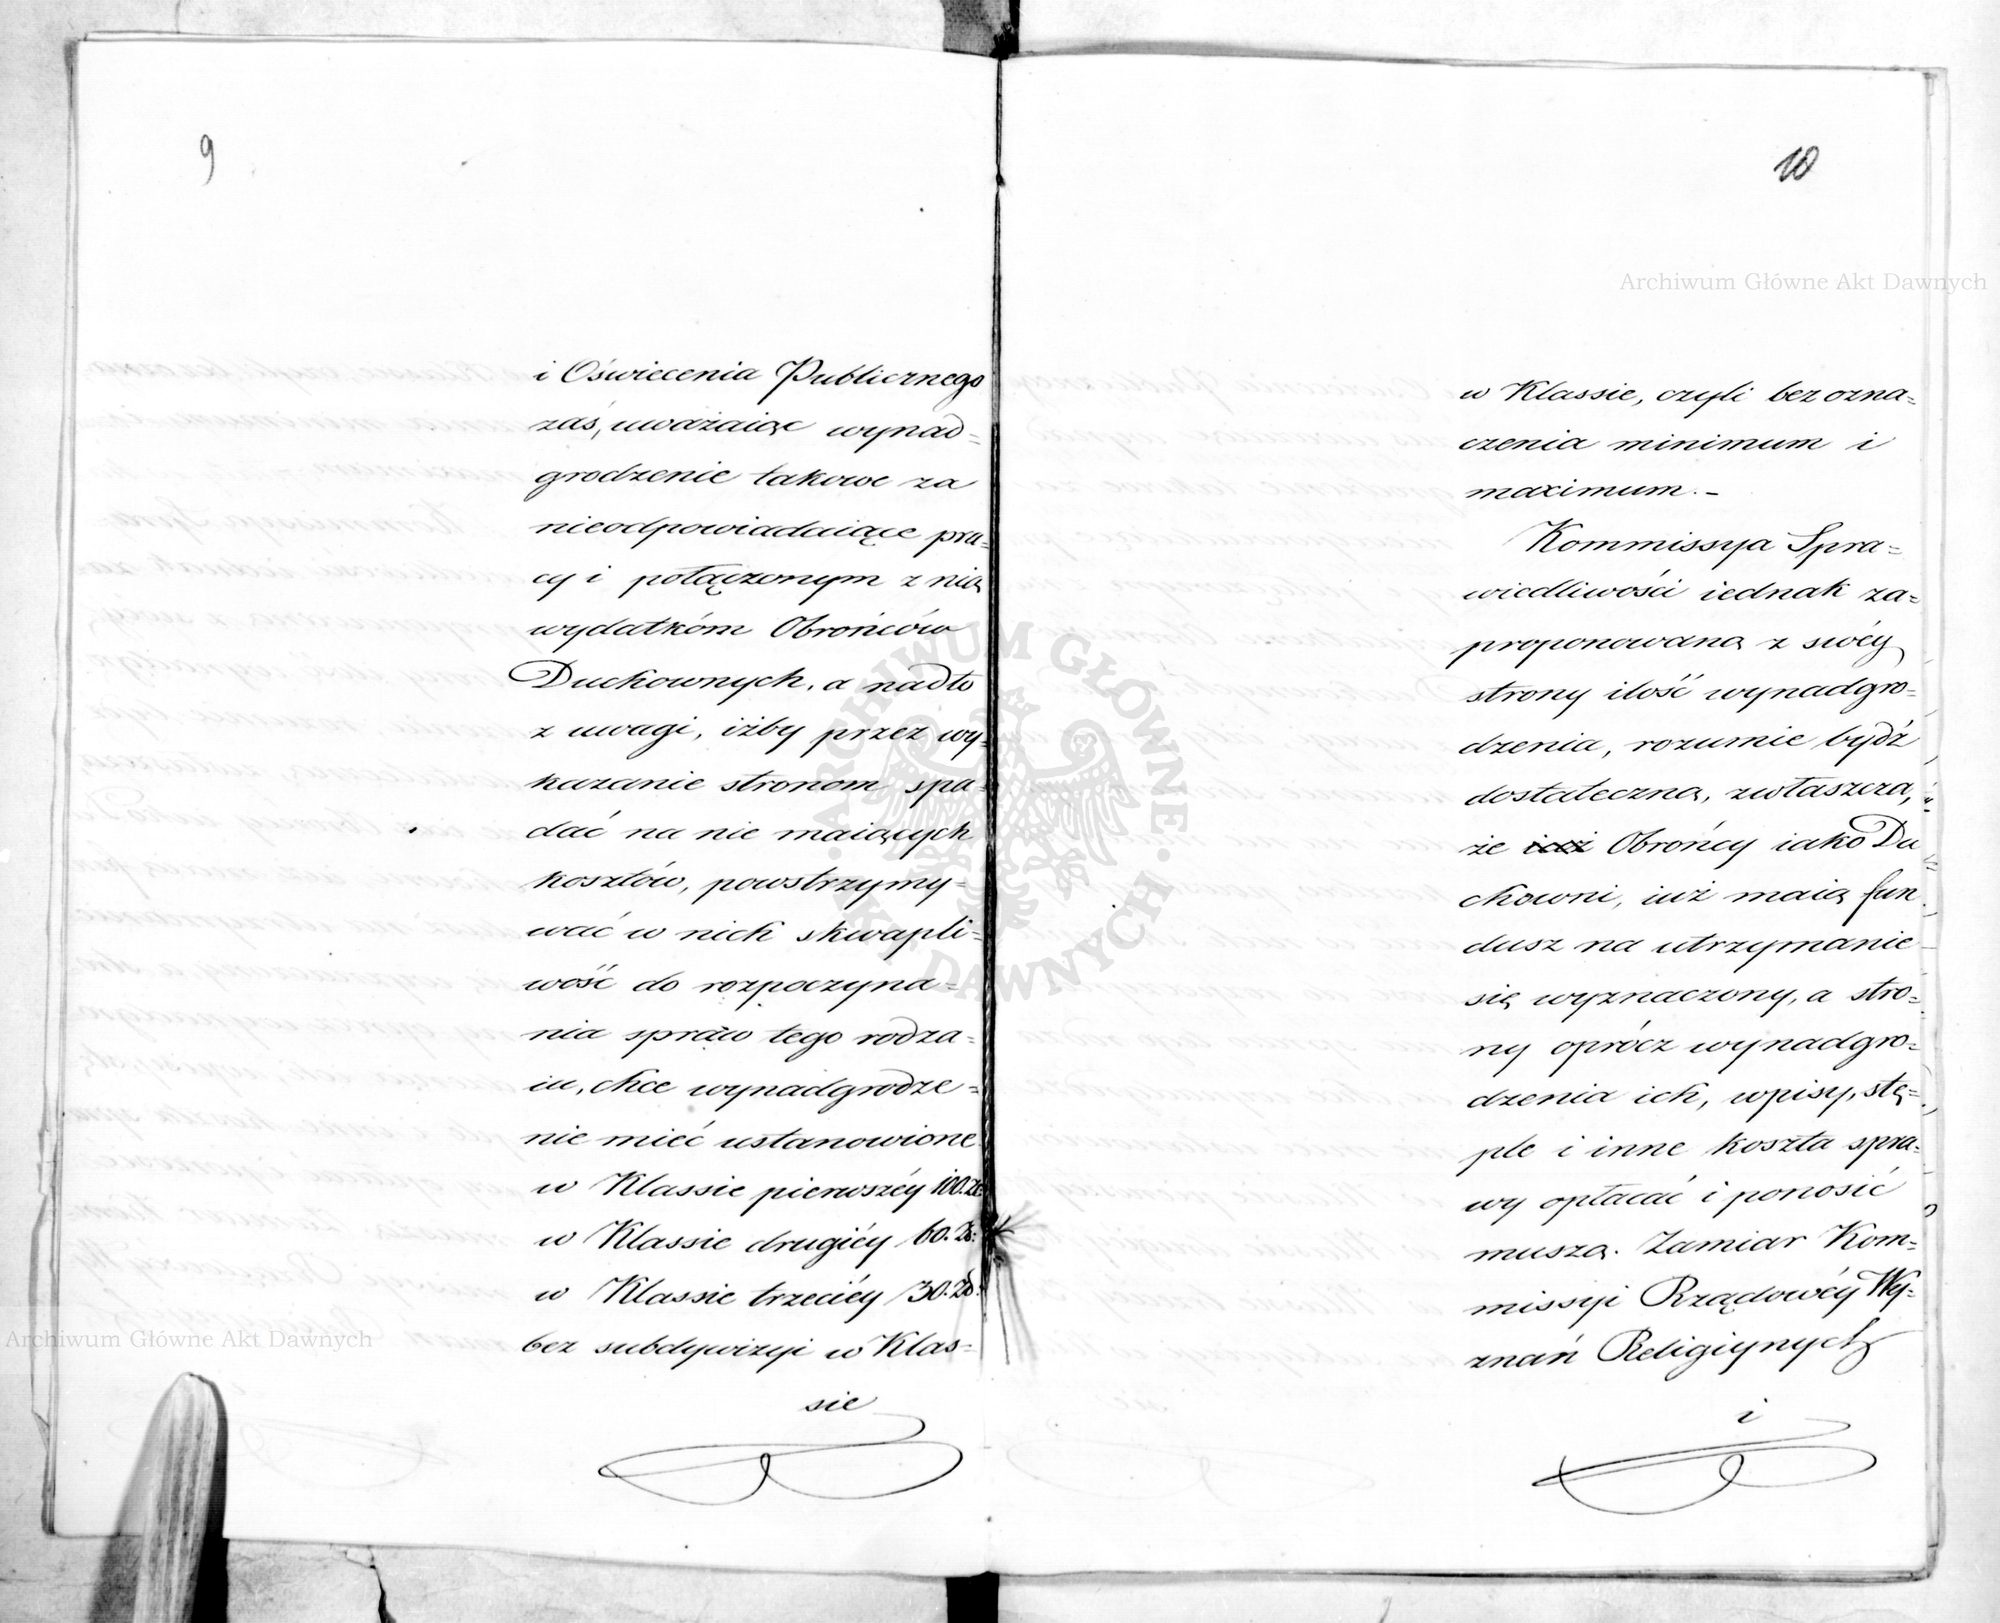 9
i Oświecenia Publicznego
zaś, uważaiąc wynad=
grodzenie takowe za
nieodpowiadaiące pra=
cy i połączonym z nią
wydatkóm Obrońców
Duchownych, a nadto
z uwagi, iżby przez wy=
kazanie stronom spa=
dać na nie maiących
kosztów, powstrzymy=
wać w nich skwapli=
wość do rozpoczyna=
nia spraw tego rodza=
iu, chce wynadgrodze=
nie mieć ustanowione
w Klassie pierwszéy 100. Zł:
w Klassie drugiéy 60. Zł:
w Klassie trzeciéy 30. Zł:
bez subdywizyi w Klas=
sie
10
w Klassie, czyli bez ozna=
czenia minimum i
maximum. –
Kommissya Spra=
wiedliwości iednak za=
proponowaną z swéy
strony ilość wynadgro=
dzenia, rozumie bydź
dostateczną, zwłaszcza,
że Obrońcy iako Du
chowni, iuż maią fun
dusz na utrzymanie
się wyznaczony, a stro=
ny oprócz wynadgro=
dzenia ich, wpisy, stę=
ple i inne koszta spra=
wy opłacać i ponosić
muszą. Zamiar Kom=
missyi Rządowéy Wy=
znań Religiynych
i
Archiwum Główne Akt Dawnych
Archiwum Główne Akt Dawnych
ARCHIWUM GŁÓWNE · AKT DAWNYCH ·